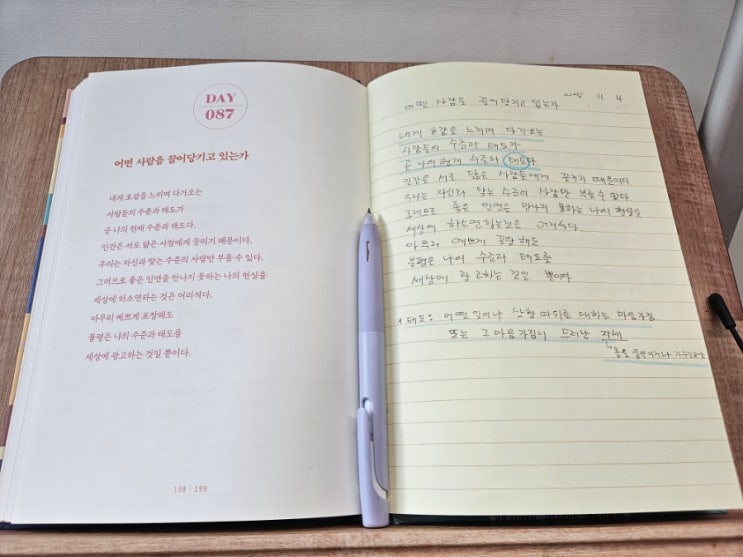 DAY
087
어떤 사람을 끌어당기고 있는가
내게 호감을 느끼며 다가오는
사람들의 수준과 태도가
곧 나의 현재 수준과 태도다.
인간은 서로 닮은 사람에게 끌리기 때문이다.
우리는 자신과 맞는 수준의 사람만 부를 수 있다.
그러므로 좋은 인연을 만나지 못하는 나의 현실을
세상에 하소연하는 것은 어리석다.
아무리 예쁘게 포장해도
불평은 나의 수준과 태도를
세상에 광고하는 것일 뿐이다.
198 | 199
11. 4
어떤 사람을 끌어당기고 있는가
내게 호감을 느끼며 다가오는
사람들의 수준과 태도가
곧 나의 현재 수준과 태도다.
인간은 서로 닮은 사람들에게 끌리기 때문이다.
우리는 자신과 맞는 수준의 사람만 부를 수 있다.
그러므로 좋은 인연을 만나지 못하는 나의 현실을
세상에 하소연하는것은 어리석다.
아무리 예쁘게 포장해도
불평은 나의 수준과 태도를
세상에 광고하는 것일 뿐이다.
* 태도: 어떤 일이나 상황 따위를 대하는 마음가짐.
또는 그 마음가짐이 드러난 자세
↳ 몸을 움직이거나